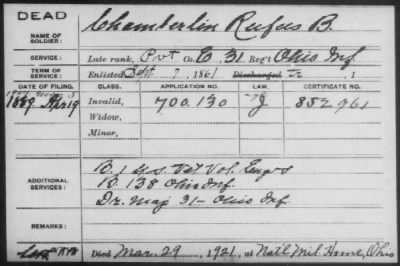 DEAD
NAME OF SOLDIER: Chamberlin Rufus B.
SERVICE: Late rank, Pvt Co. E, 31 Reg't Ohio Inf.
TERM OF SERVICE: Enlisted Sept. 7, 1861 Discharged , 1
DATE OF FILING. CLASS. APPLICATION NO. LAW. CERTIFICATE NO.
1889 Apr 19 Invalid, 700.130 J 852 961
Widow,
Minor,
ADDITIONAL SERVICES: B. 1 U.S. Vet Vol. Eng's
B. 138 Ohio Inf.
Dr. Maj 31 - Ohio Inf
REMARKS:
Died Mar. 29, 1921, at Nat'l Mil Home, Ohio